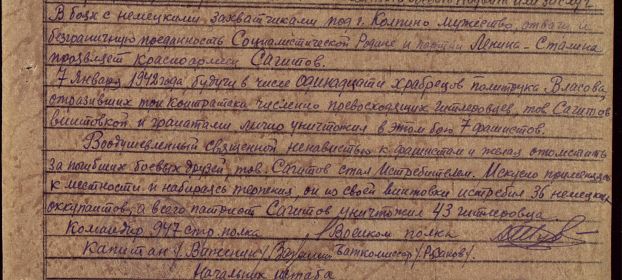 В боях с немецкими захватчиками под г. Колпино мужество, отвагу и
безграничную преданность Социалистической Родине и партии Ленина-Сталина
проявляет красноармеец Сагитов.
7 Января 1942 года будучи в числе одиннадцати храбрецов политрука Власова,
отразивших три контратаки численно превосходящих гитлеровцев, тов Сагитов
винтовкой и гранатами лично уничтожил в этом бою 7 фашистов.
Воодушевленный священной ненавистью к фашистам и желая отомстить
за погибших боевых друзей, тов. Сагитов стал Истребителем. Искусно
к местности и набираясь терпения, он из своей винтовки истребил 36 немецких
оккупантов, а всего патриот Сагитов уничтожил 43 гитлеровца.
Командир 947 стр. полка Военком полка
Капитан /Важенин/ Баткомиссар
Начальник штаба